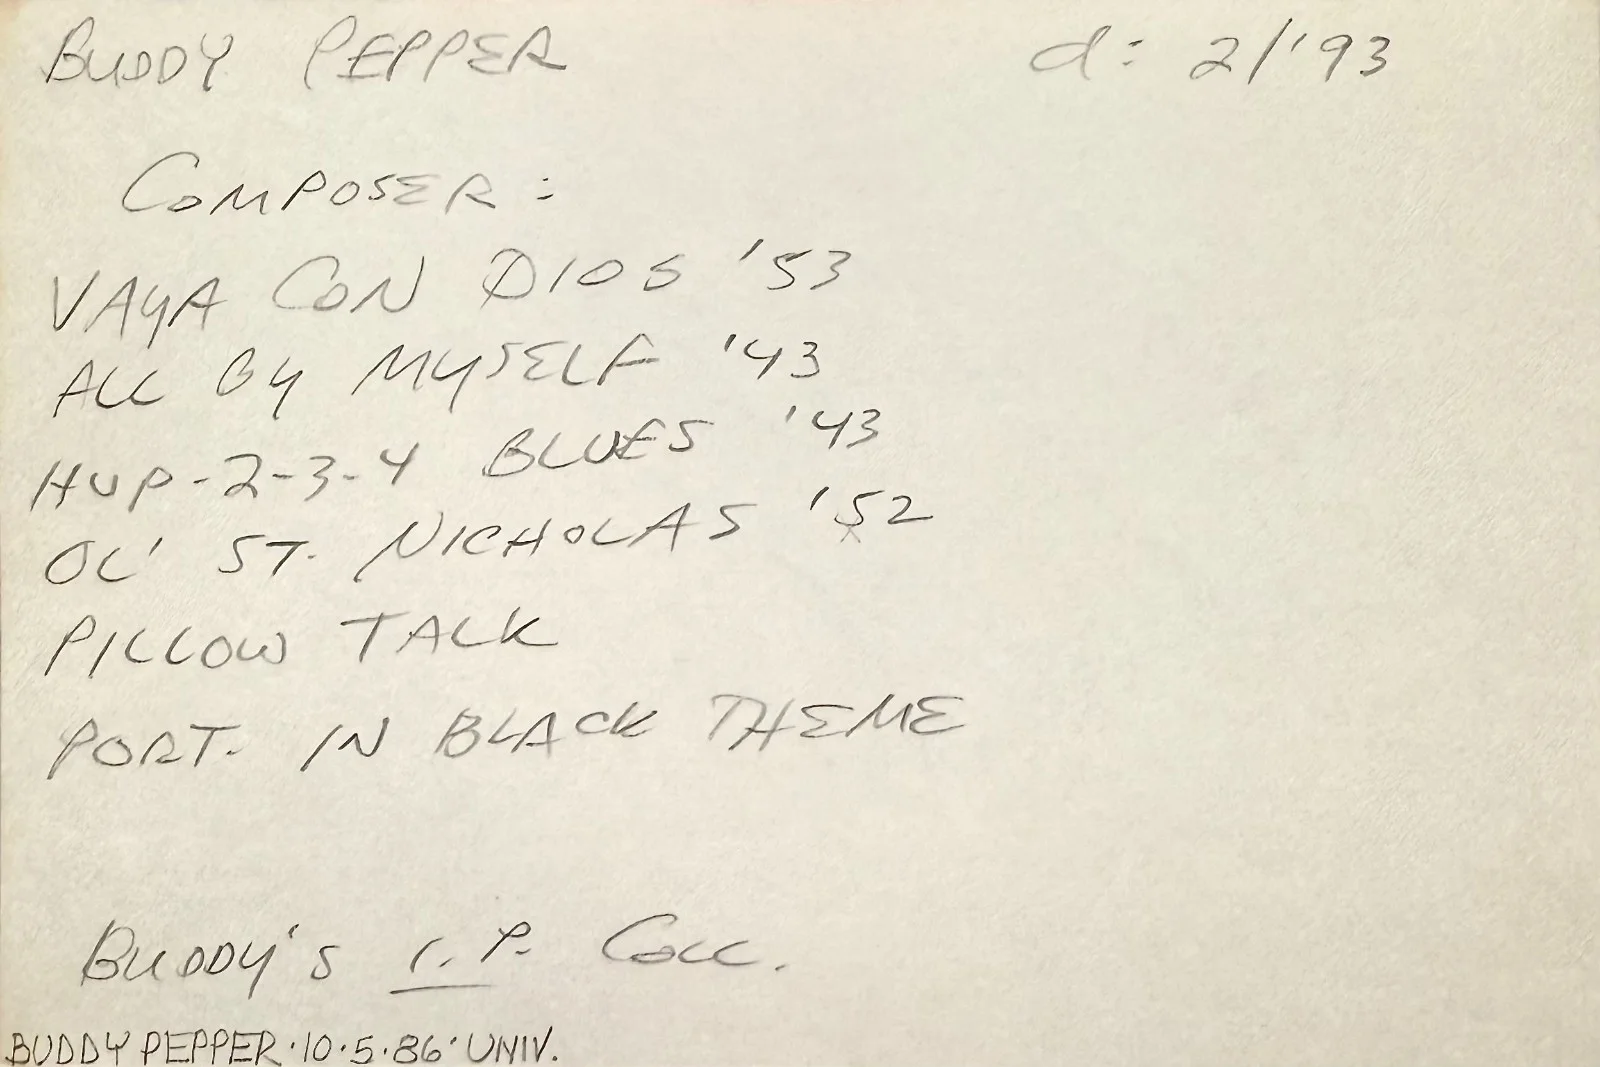 BUDDY PEPPER d: 2/'93
COMPOSER:
VAYA CON DIOS '53
ALL BY MYSELF '43
HUP-2-3-4 BLUES '43
OL' ST. NICHOLAS '52
PILLOW TALK
PORT. IN BLACK THEME
BUDDY'S I.P. COLL.
BUDDY PEPPER·10·5·86·UNIV.